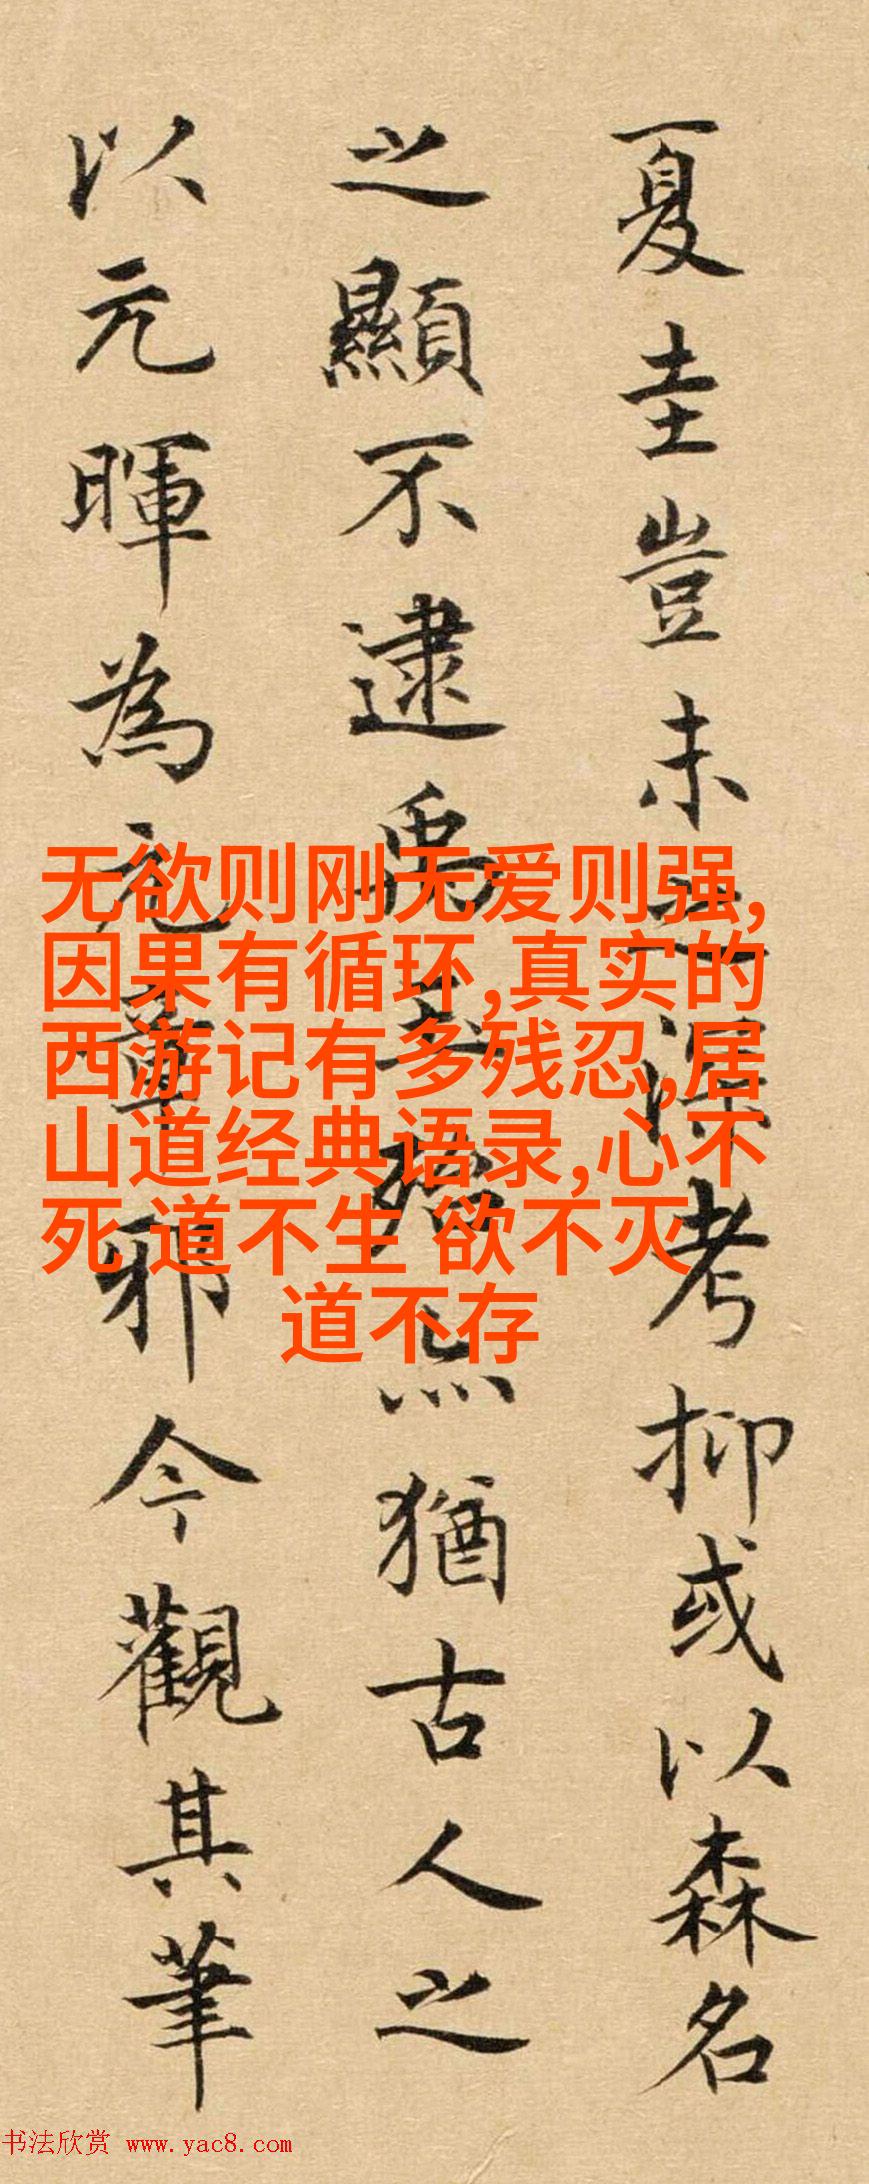 夏圭豈未之深考抑或以森名
之顯不逮禹玉殆亦猶古人之
以元暉為元章邪今觀其筆
无欲则刚无爱则强,
因果有循环,真实的
西游记有多残忍,居
山道经典语录,心不
死 道不生 欲不灭
道不存
书法欣赏 www.yac8.com